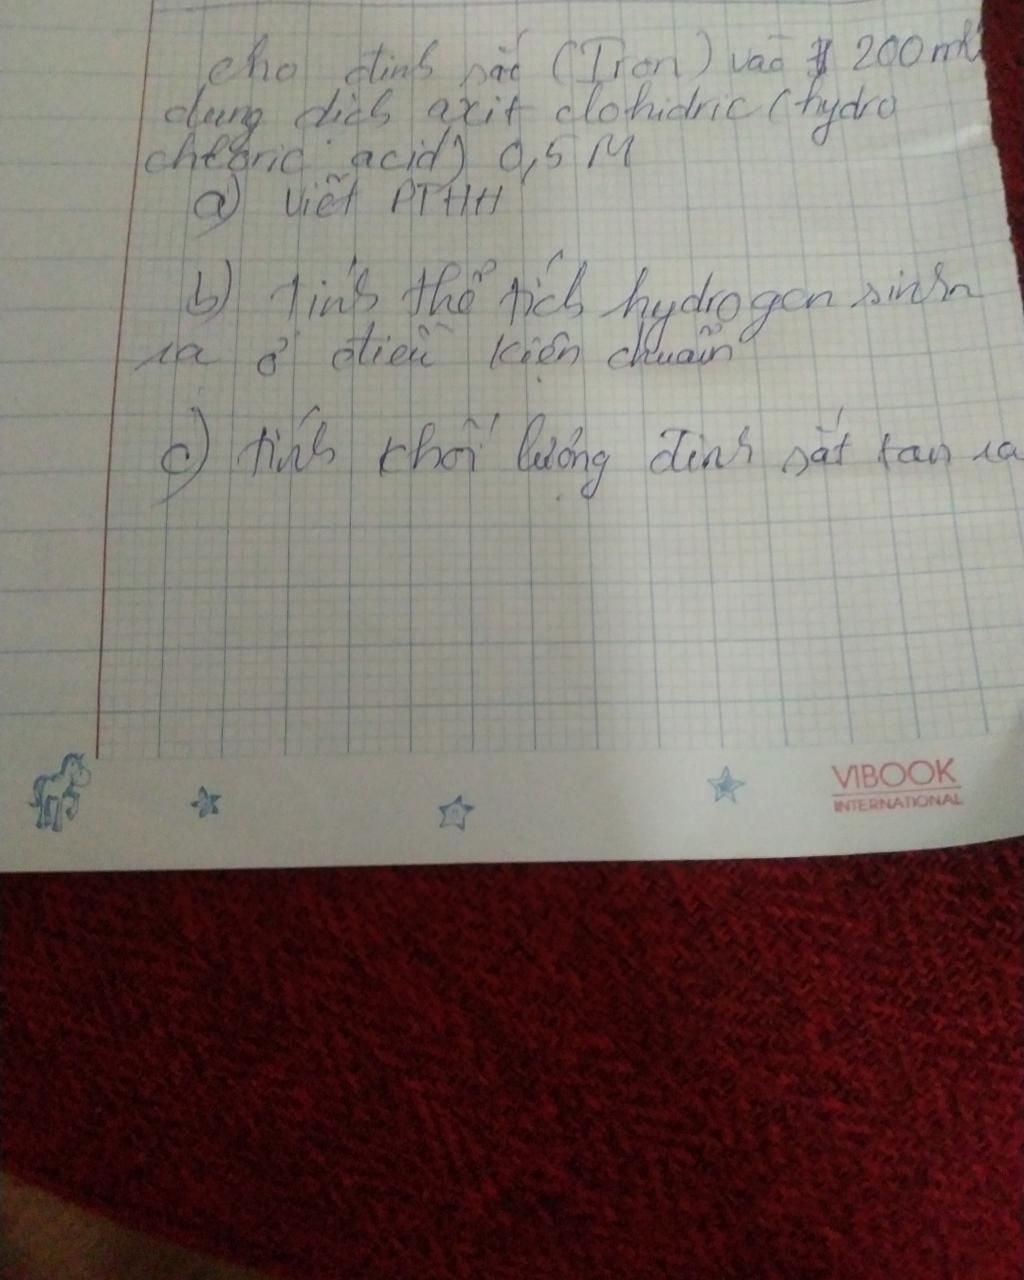 cho đinh sắt (Iron) vào 200ml
dung dịch axit clohidric (hydro
chloric acid) 0,5 M
a) viết PTHH
b) tính thể tích hydrogen sinh
ra ở điều kiện chuẩn
c) tính khối lượng đinh sắt tan ra
VIBOOK
INTERNATIONAL